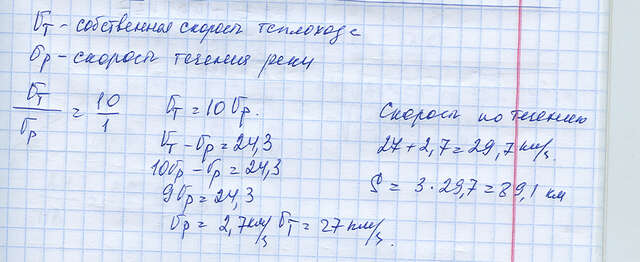 Vт - собственная скорость теплохода
Vр - скорость течения реки
Vт/Vр = 10/1
Vт = 10Vр.
Vт - Vр = 24,3
10Vр - Vр = 24,3
9Vр = 24,3
Vр = 2,7 км/ч Vт = 27 км/ч.
Скорость по течению
27 + 2,7 = 29,7 км/ч
S = 3 · 29,7 = 89,1 км